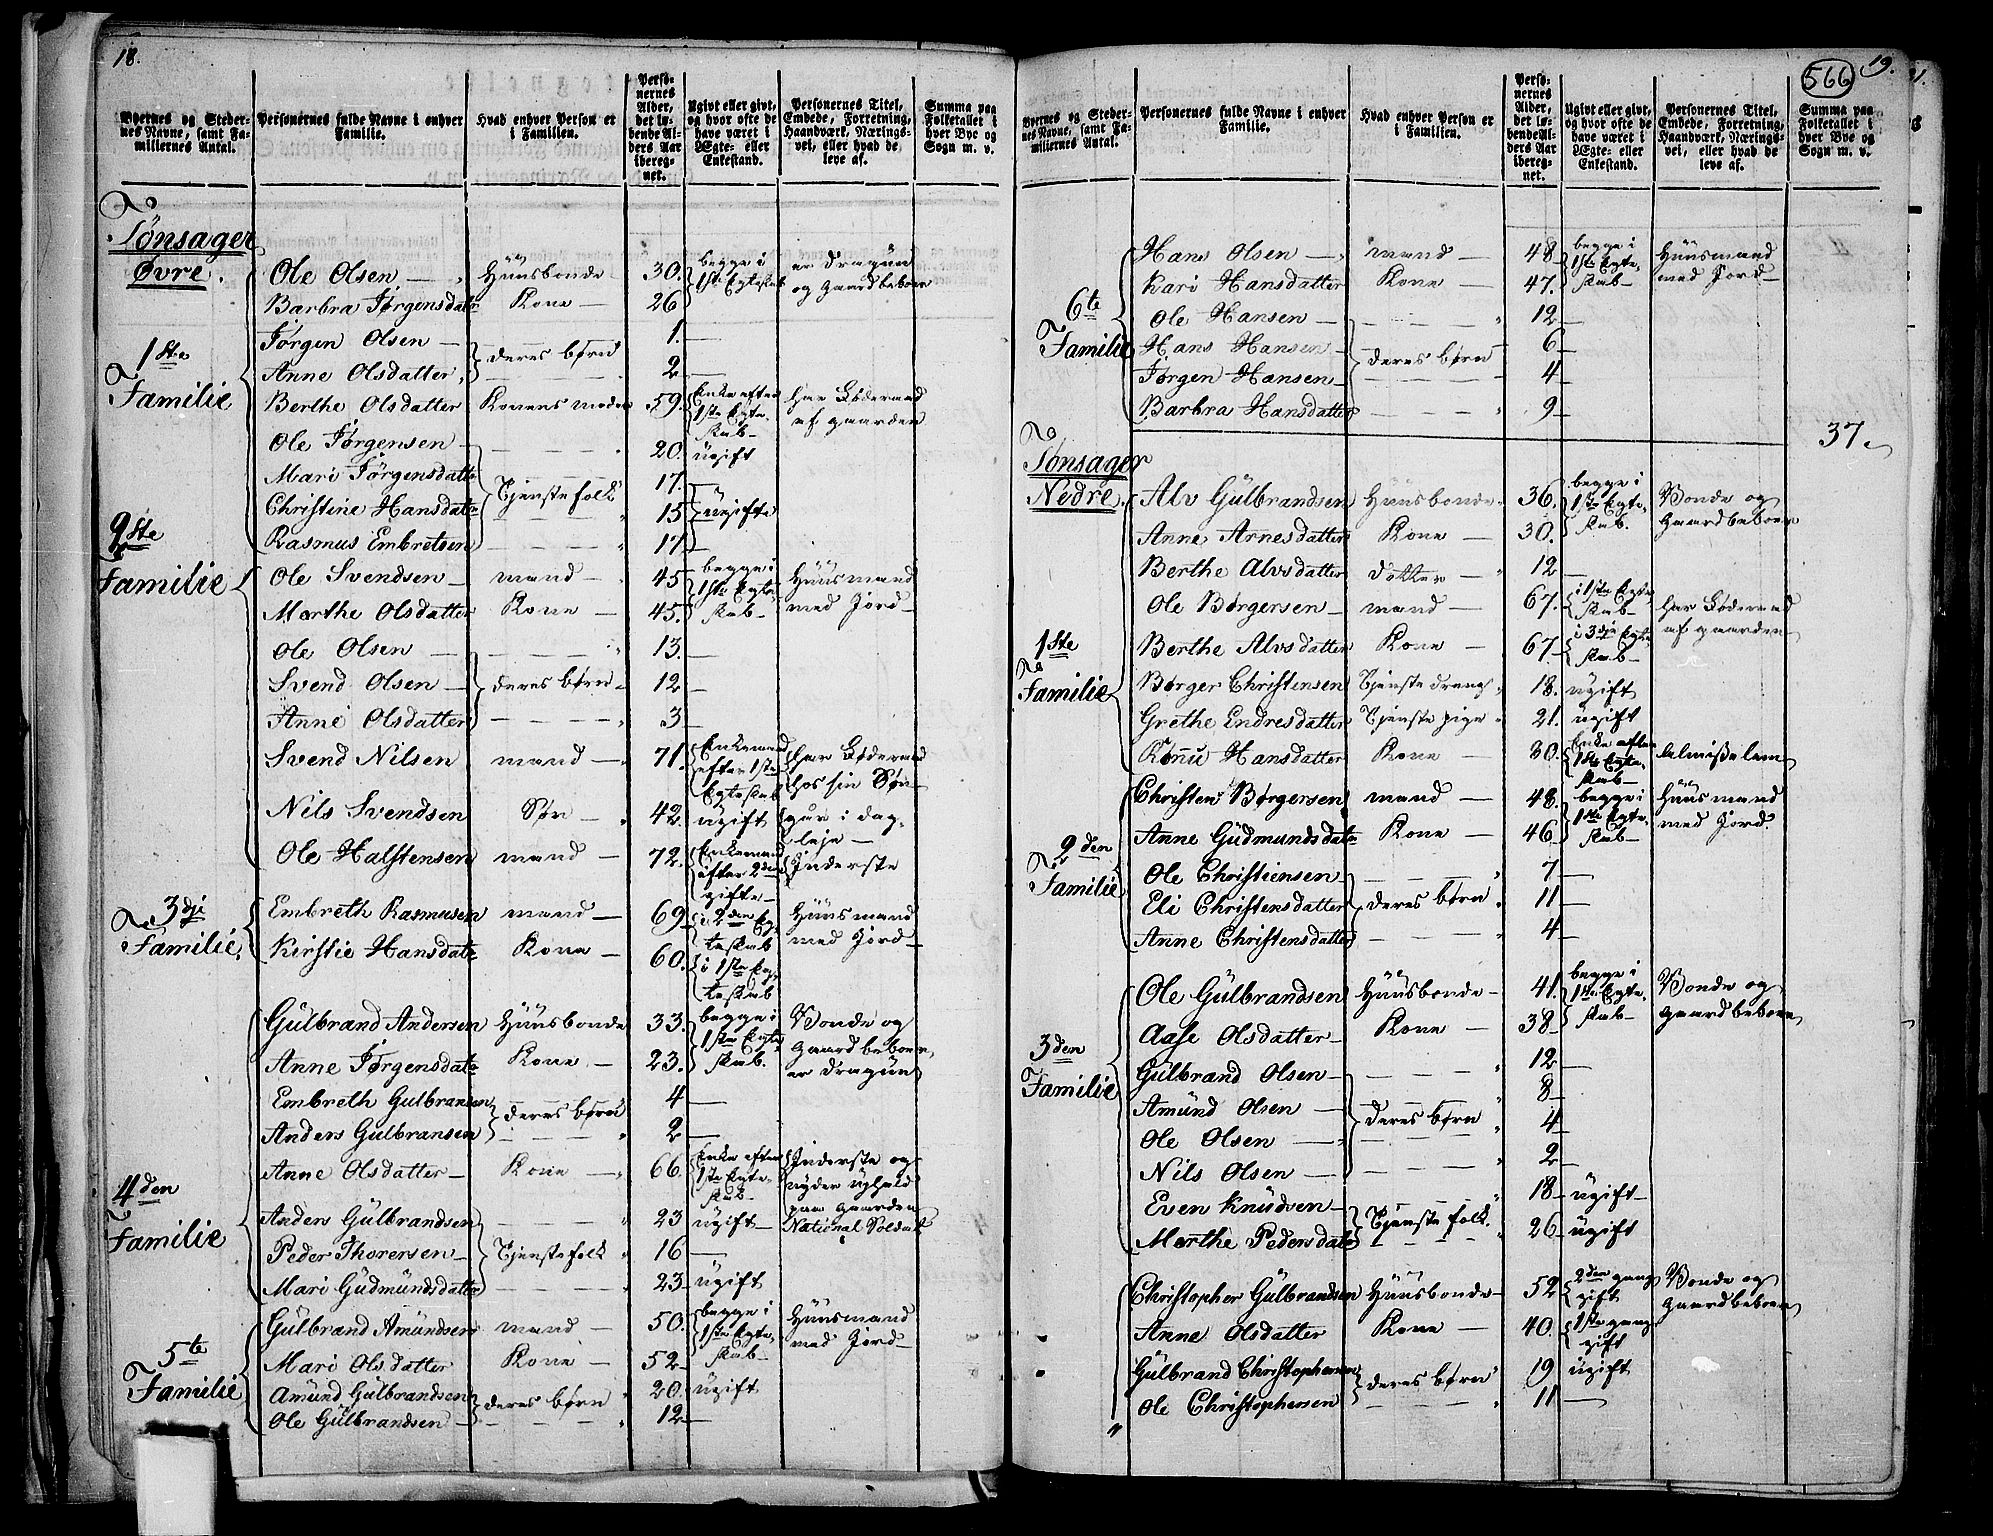 18.
Byernes og Steder-
nes Navne, samt Fa-
miliernes Antal.
Personernes fulde Navne i enhver
Familie.
Hvad enhver Person er
i Familien.
Perso-
nernes
Alder,
det lø-
bende Al-
ders Aar
ibereg-
net.
Ugivt eller givt,
og hvor ofte de
have været i
Ægte- eller
Enkestand.
Personernes Titel,
Embede, Forretning,
Haandværk, Nærings-
vei, eller hvad de
leve af.
Summa paa
Folketallet i
hver Bye og
Sogn m. v.
Tönsager
Övre.
1ste
Familie
Ole Olsen — Huusbonde 30. begge i 1ste Egteskab er Dragun og Gaardbeboer
Barbra Jørgensdatr Kone — 26
Jørgen Olsen — deres børn 1. —
Anne Olsdatter, — 2 —
Berthe Olsdatter Konens moder 59. Enke efter 1ste Egteskab — har Føderaad af gaarden
Ole Jørgensen — Tjenstefolk 20. ugift
Mari Jørgensdattr 17. ugifte
Christine Hansdatr 15
Rasmus Embretsen — 17
2ste
Familie
Ole Svendsen — mand — 45 begge i 1ste Egteskab — Huusmand med Jord —
Marthe Olsdatter Kone — 45.
Ole Olsen — deres børn 13. —
Svend Olsen — 12 —
Anne Olsdatter — 3 —
Svend Nilsen mand — 71. Enkemand efter 1ste Egteskab har Føderaad hos sin Søn —
Nils Svendsen Søn — 42. ugift gaar i dagleje —
Ole Halstensen mand — 72. Enkemand efter 2den gifte — Inderste
3dje
Familie
Embreth Rasmusen mand — 69 i 2den Egteskab Huusmand med Jord —
Kirstie Hansdatr Kone — 60. i 1ste Egteskab
4den
Familie
Gulbrand Andersen Huusbonde 33. begge i 1ste Egteskab. Bonde og Gaardbeboer, er Dragun
Anne Jørgensdatr Kone — 23.
Embreth Gulbransen deres børn 4 —
Anders Gulbransen — 2 —
Anne Olsdatter — Kone — 66. Enke efter 1ste Egteskab — Inderste og nyder ophold paa gaarden
Anders Gulbrandsen — Tjenstefolk 23 ugift — National Soldat
Peder Thorersen — 16 —
Mari Gudmundsdatter — 23 ugift
5te
Familie
Gulbrand Amundsen mand — 50. begge i 1ste Egteskab — Huusmand med Jord —
Mari Olsdatter Kone — 52
Amund Gulbrandsen deres børn 20. ugift
Ole Gulbrandsen — 12 —
566
19.
Byernes og Steder-
nes Navne, samt Fa-
miliernes Antal.
Personernes fulde Navne i enhver
Familie.
Hvad enhver Person er
i Familien.
Perso-
nernes
Alder,
det lø-
bende Al-
ders Aar
ibereg-
net.
Ugivt eller givt,
og hvor ofte de
have været i
Ægte- eller
Enkestand.
Personernes Titel,
Embede, Forretning,
Haandværk, Nærings-
vei, eller hvad de
leve af.
Summa paa
Folketallet i
hver Bye og
Sogn m. v.
6te
Familie
Hans Olsen — mand — 48 begge i 1ste Egteskab — Huusmand med Jord —
Kari Hansdatter Kone — 47.
Ole Hansen — deres børn 12 —
Hans Hansen — 6 —
Jørgen Hansen — 4 —
Barbra Hansdatter — 9 —
37.
Tönsager
Nedre.
1ste
Familie
Alv Gulbrandsen Huusbonde 36. begge i 1ste Egteskab. Bonde og Gaardbeboer
Anne Arnesdatter Kone — 30.
Berthe Alvsdatter Dotter — 12 —
Ole Børgersen — mand — 67. i 1ste Egteskab — har Føderaad af gaarden —
Berthe Alvsdatter Kone — 67. i 3die Egteskab —
Børger Christensen Tjenste dreng 18. ugift
Grethe Endresdatter Tjenste pige 21. ugift
Rønnu Hansdatter Kone — 30. Enke efter 1ste Egteskab — Almisselem
2den
Familie
Christen Børgersen mand — 48. begge i 1ste Egteskab — Huusmand med Jord.
Anne Gudmundsdatr Kone — 46
Ole Christiensen — deres børn 7 —
Eli Christensdatter 11 —
Anne Christensdatter — 4 —
3den
Familie
Ole Gulbrandsen Huusbonde — 41. begge i 1ste Egteskab — Bonde og gaardbeboer
Aase Olsdatter — Kone — 38
Gulbrand Olsen — deres børn 12 —
Amund Olsen — 8 —
Ole Olsen — 4 —
Nils Olsen — 2 —
Even Knudsen — Tjenste folk. 18 ugift —
Marthe Pedersdatr 26 ugift
Christopher Gulbrandsen Huusbonde — 52 2den gang gift Bonde og Gaardbeboer
Anne Olsdatter Kone — 40. 1ste gang gift
Gulbrand Christophersen deres børn 19 ugift
Ole Christophersen 11 —